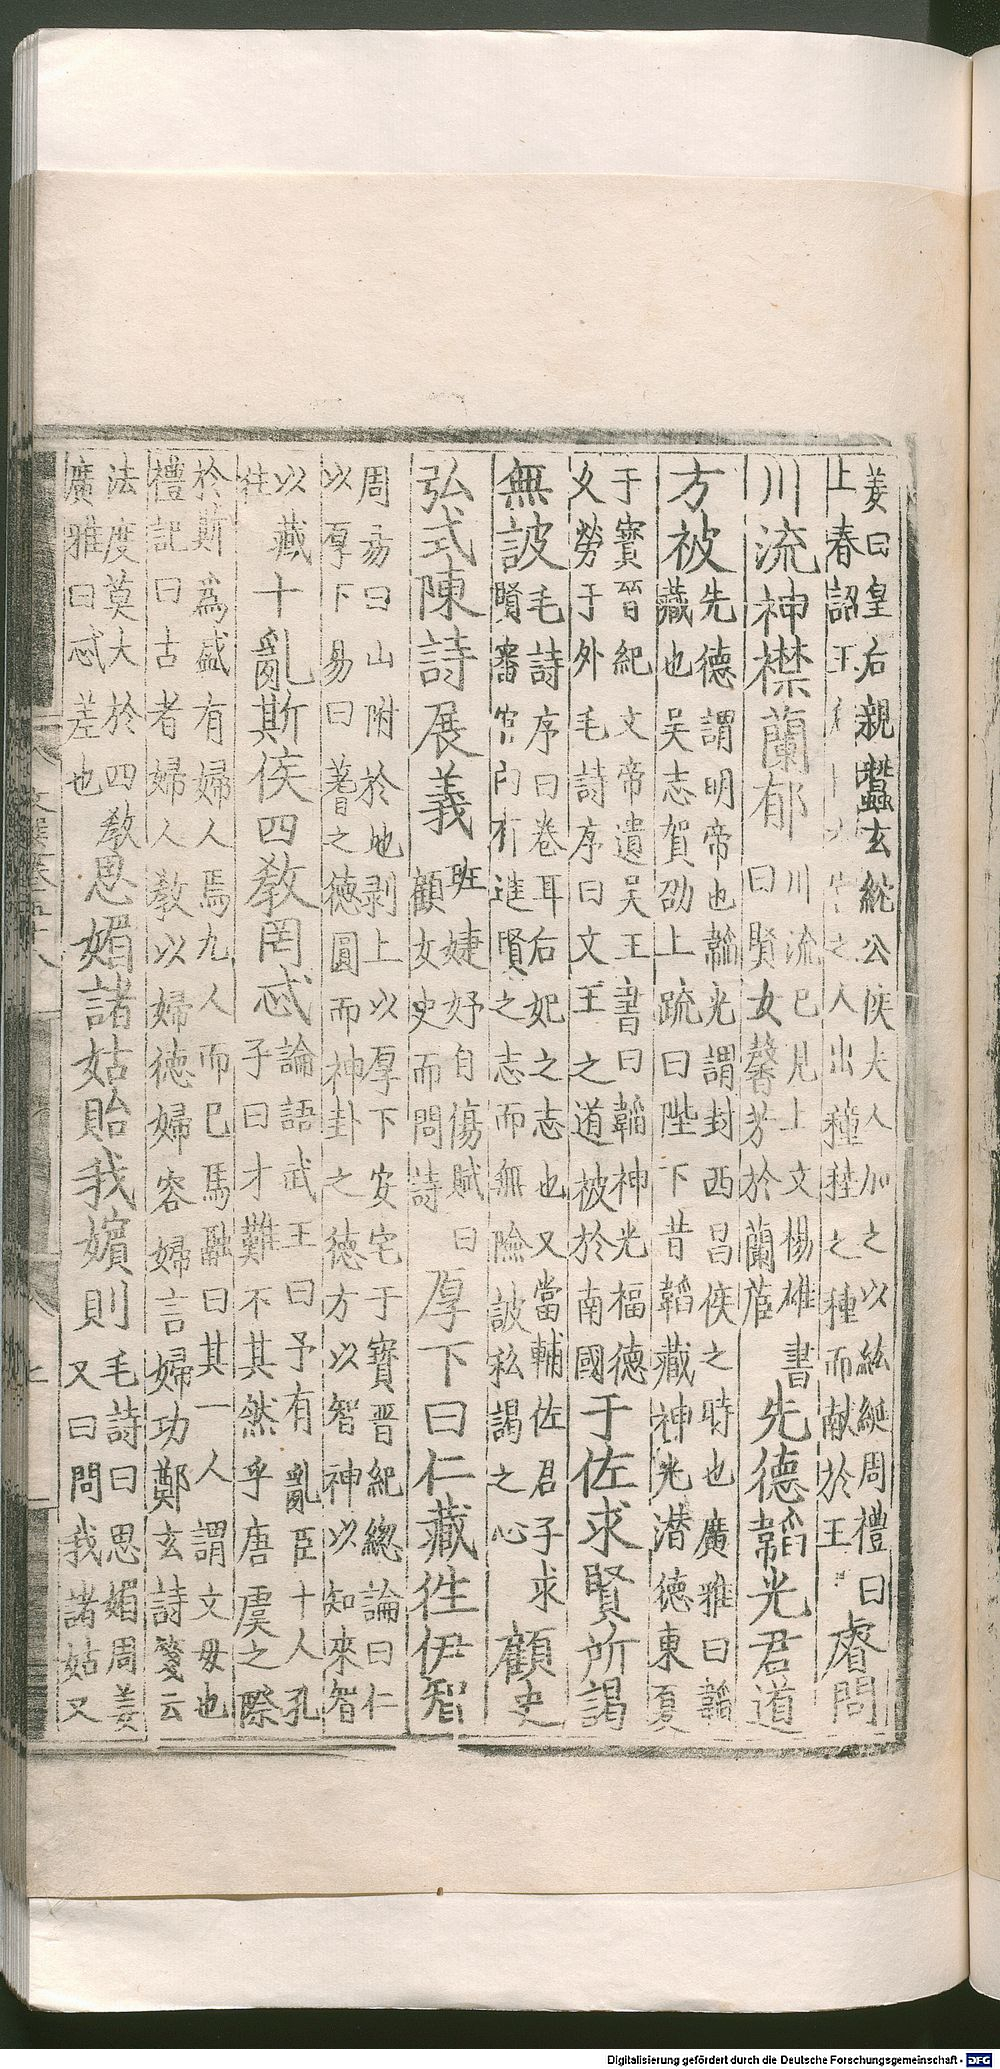 姜曰皇后親蠶玄紞公侯夫人加之以紘綖周禮曰
上春詔王之人出穜稑之種而献於王
睿問
川流神襟蘭郁
川流已見上文楊雄書
曰賢女馨芳於蘭茝
先德韜光君道
方被
先德謂明帝也韜光謂封西昌侯之時也廣雅曰韜
藏也吴志賀劭上疏曰陛下昔韜藏神光潜德東夏
于寳晉紀文帝遺吴王書曰韜神光福德
乆勞于外毛詩序曰文王之道被於南國
于佐求賢所謁
無詖
毛詩序曰卷耳后妃之志也又當輔佐君子求
賢審官内有進賢之志而無險詖私謁之心
顧史
弘式陳詩展義
班婕妤自傷賦曰
顧女史而問詩
厚下曰仁藏徃伊智
周昜曰山附於地剥上以厚下安宅于寳晋紀緫論曰仁
以厚下易曰蓍之德圓而神卦之德方以智神以知來智
以藏
往
十亂斯俟四教罔忒
論語武王曰予有亂臣十人孔
子曰才難不其然乎唐虞之際
於斯爲盛有婦人焉九人而已馬融曰其一人謂文母也
禮記曰古者婦人教以婦德婦容婦言婦功鄭玄詩箋云
法度莫大於四教
廣雅曰忒差也
思媚諸姑貽我嬪則
毛詩曰思媚周姜
又曰問我諸姑又
Digitalisierung gefördert durch die Deutsche Forschungsgemeinschaft - DFG